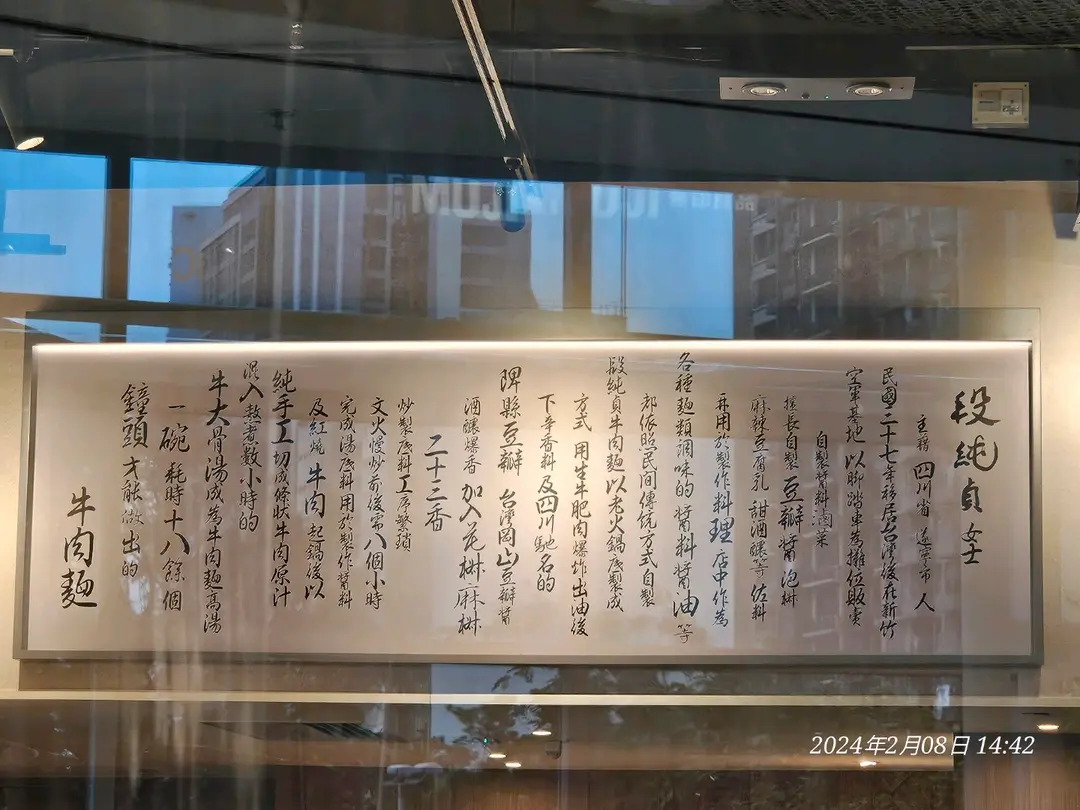 段純貞女士
主籍四川省遂寧市人
民國三十七年移居台灣後在新竹
空軍基地以腳踏車為攤位販賣
自製醬料滷菜
擅長自製豆瓣醬泡椒
麻辣豆腐乳甜酒釀等佐料
再用於製作料理店中作為
各種麵類調味的醬料醬油等
都依照民間傳統方式自製
段純貞牛肉麵以老火鍋底製成
方式用生牛肥肉爆炸出油後
下辛香料及四川馳名的
郫縣豆瓣台灣岡山豆瓣醬
酒釀爆香加入花椒麻椒
二十三香
炒製底料工序繁瑣
文火慢炒前後需八個小時
完成湯底料用於製作醬料
及紅燒牛肉起鍋後以
純手工切成條狀牛肉原汁
混入熬煮數小時的
牛大骨湯成為牛肉麵高湯
一碗耗時十八餘個
鐘頭才能做出的
牛肉麵
MUJI.COM
2024年2月08日 14:42